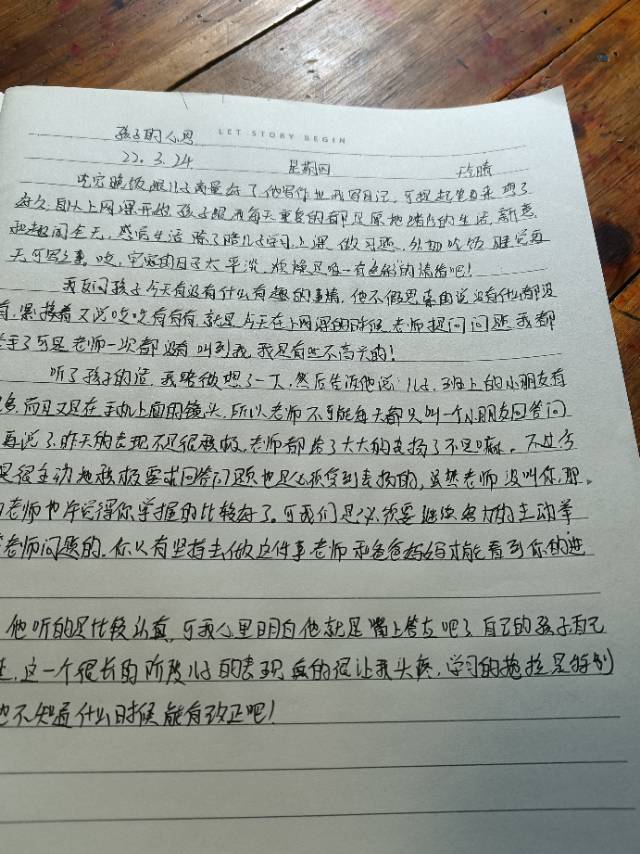 孩子的心思 LET STORY BEGIN
22.3.24 星期四
吃完晚饭跟儿子商量好了,他写作业我写日记,可提起笔来想了
好久,自从上网课开始孩子跟我每天重复的都是原地踏步的生活,新意
和趣闻全无,感后生活除了陪儿子学习上课做习题,外加吃饭睡觉再
天可写之事,哎,宅家的日子太平淡,烦燥是唯一有色彩的情绪吧!
我反问孩子今天有没有什么有趣的事情,他不假思索的说没有什么都没
有,紧接着又说哎哎有有有,就是今天在上网课的时候,老师提问问题我都
举手了可是老师一次都没有叫到我,我是有些不高兴的!
听了孩子的话,我略微想了一下,然后告诉他说:儿子,班上的小朋友有
多,而且又是在手机上面的镜头,所以老师不可能每天都只叫一个小朋友回答问
再说了昨天的表现不是很积极,老师都给了大大的表扬了不是嘛。不过今
是很主动地积极要求回答问题也是必须受到表扬的,虽然老师没叫你,那
老师也许觉得你掌握的比较好了。可我们是必须要继续努力的主动举
老师问题的,你只有坚持去做这件事老师和爸爸妈妈才能看到你的进
他听的是比较认真,可我心里明白他就是嘴上答应吧了,自己的孩子自己
,这一个很长的阶段儿子的表现真的很让我头疼,学习的拖拉是特别
也不知道什么时候能有改正吧!